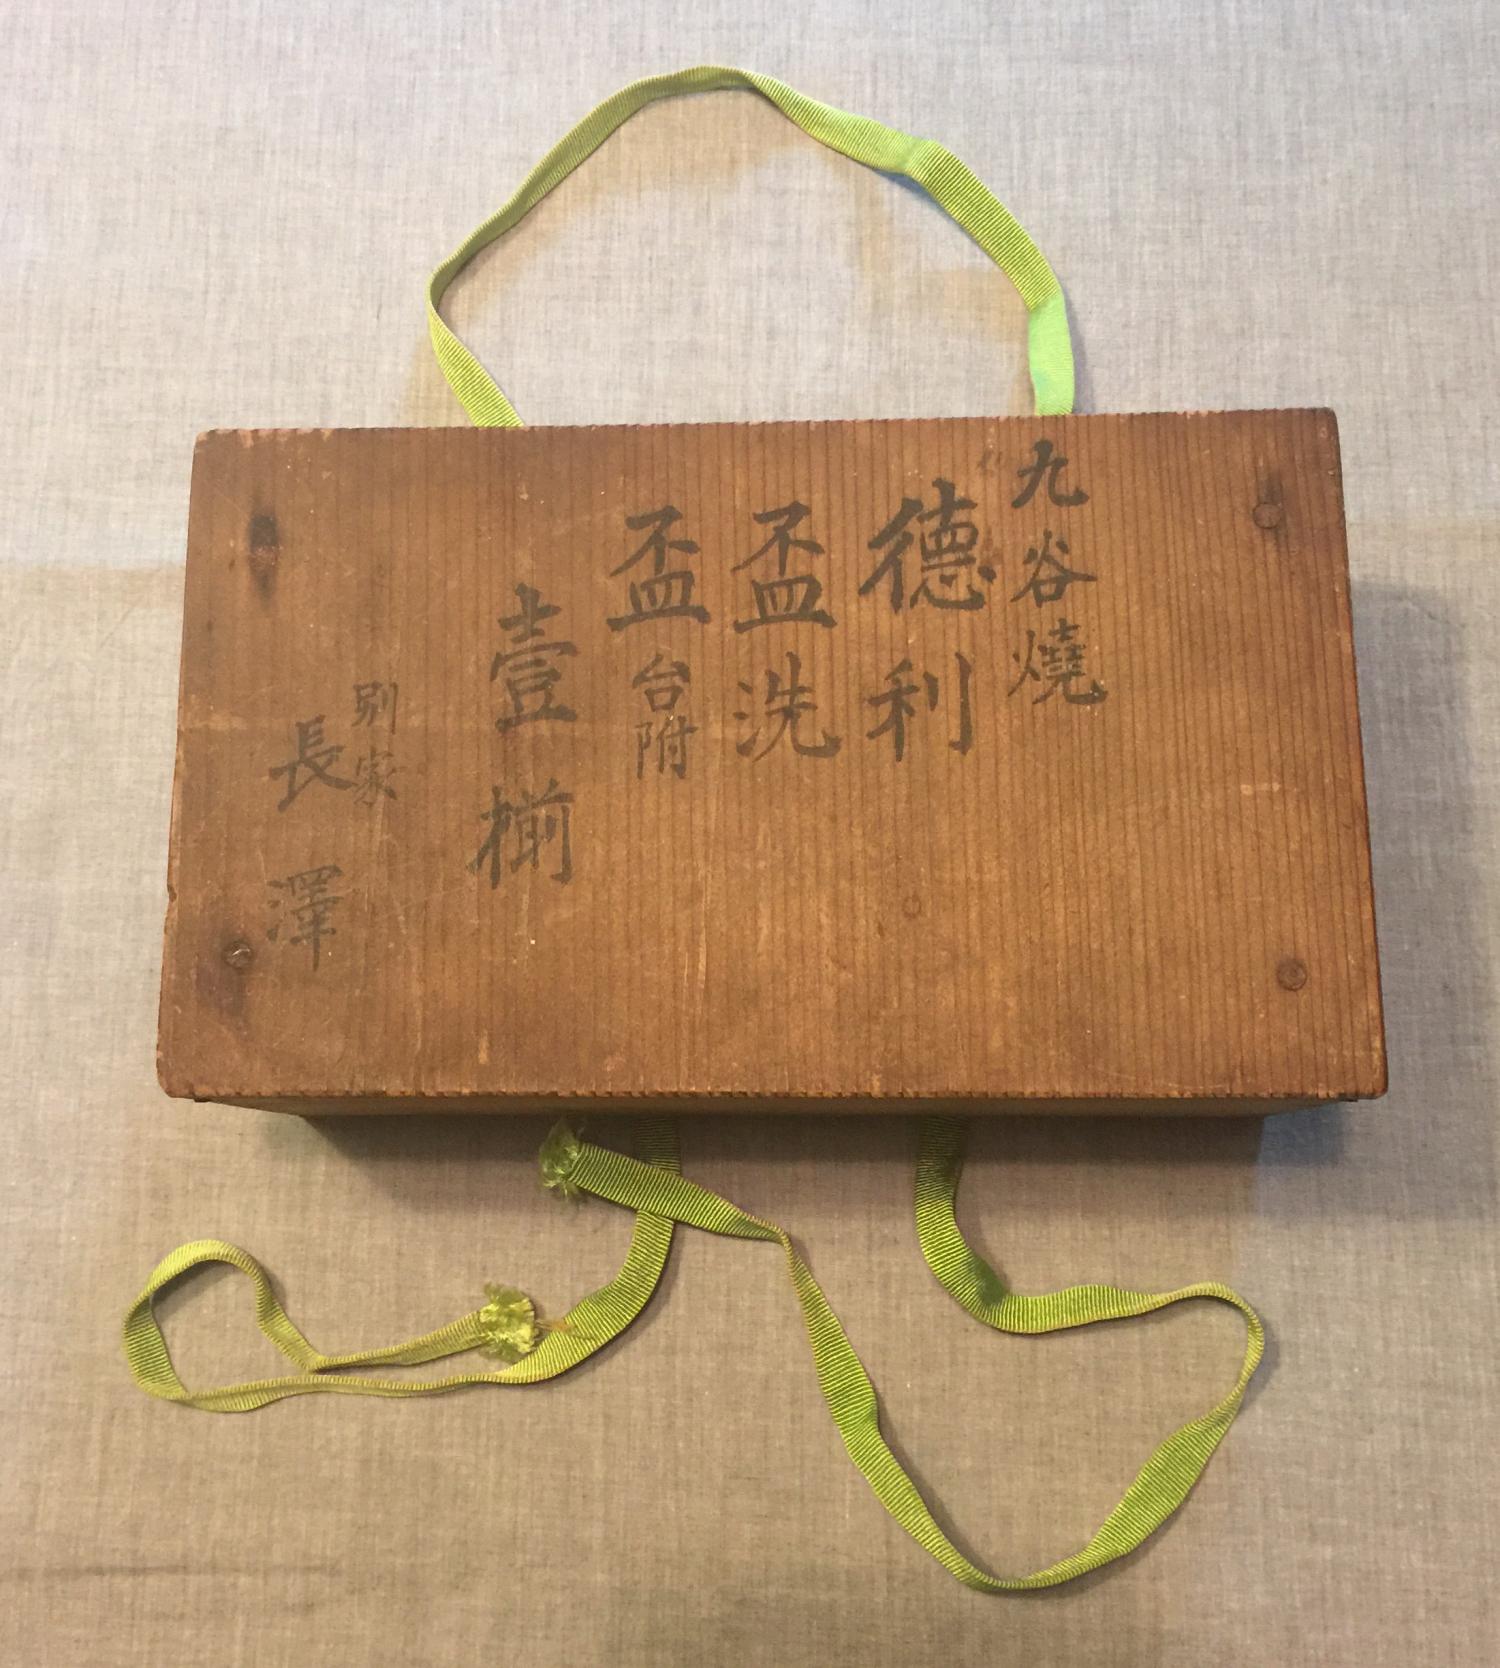 九谷燒
德利
盃洗
盃台附
壹揃
別家
長澤